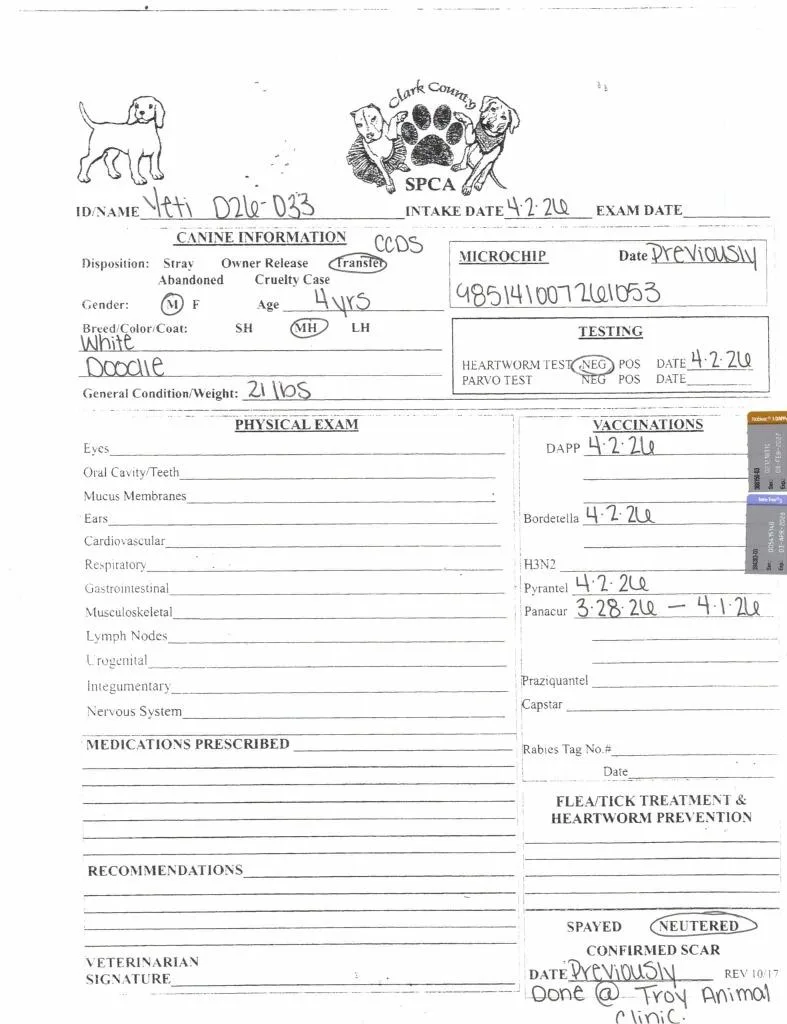 Clark County
SPCA
ID/NAME Yeti D26-033 INTAKE DATE 4·2·26 EXAM DATE
CANINE INFORMATION CCDS
Disposition: Stray Owner Release Transfer
Abandoned Cruelty Case
Gender: M F Age 4yrs
Breed/Color/Coat: SH MH LH
White
Doodle
General Condition/Weight: 21 lbs
MICROCHIP Date Previously
985141007261053
TESTING
HEARTWORM TEST NEG POS DATE 4·2·26
PARVO TEST NEG POS DATE
PHYSICAL EXAM
Eyes
Oral Cavity/Teeth
Mucus Membranes
Ears
Cardiovascular
Respiratory
Gastrointestinal
Musculoskeletal
Lymph Nodes
Urogenital
Integumentary
Nervous System
MEDICATIONS PRESCRIBED
RECOMMENDATIONS
VETERINARIAN
SIGNATURE
VACCINATIONS
DAPP 4·2·26
Bordetella 4·2·26
H3N2
Pyrantel 4·2·26
Panacur 3·28·26 — 4·1·26
Praziquantel
Capstar
Rabies Tag No.#
Date
FLEA/TICK TREATMENT &
HEARTWORM PREVENTION
SPAYED NEUTERED
CONFIRMED SCAR
DATE Previously REV 10/17
Done @ Troy Animal
Clinic.